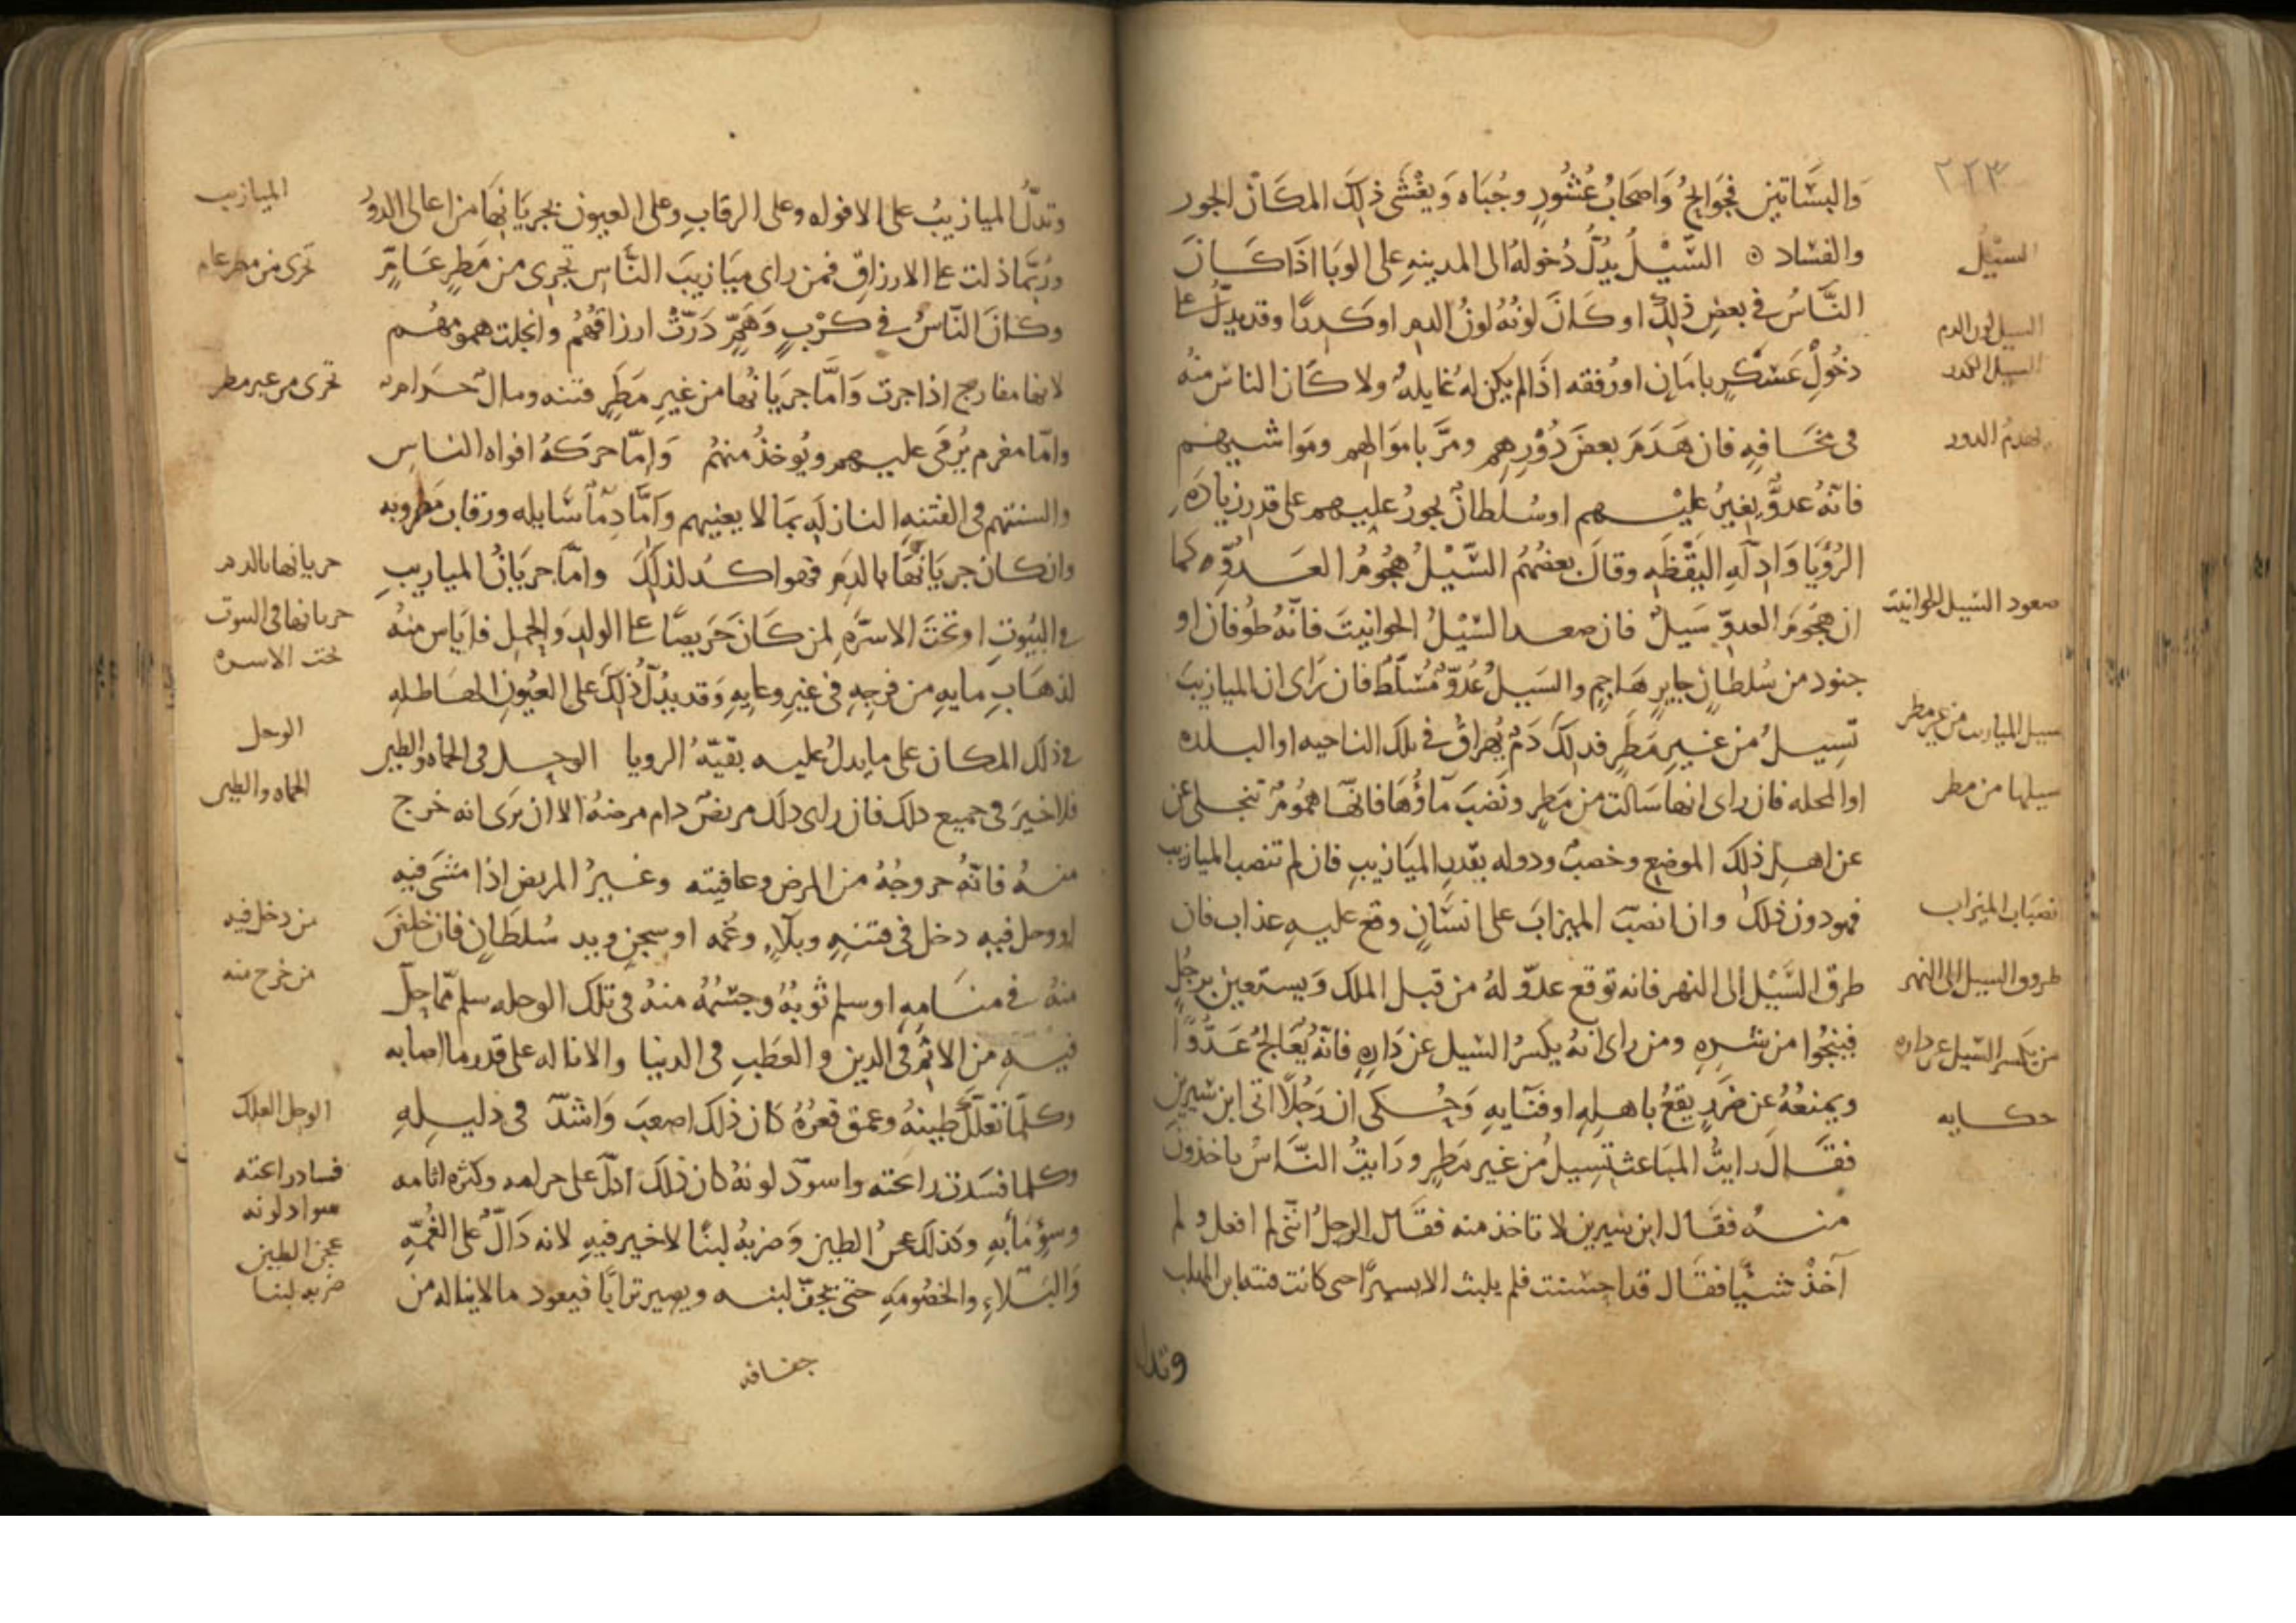 ٢٢٣
والبساتين فجوايح واصحاب عشور وجباه ويغشى ذلك المكان الجور
والفساد ۞ السيل يدل دخوله الى المدينه على الوبا اذا كان
الناس في بعض ذلك او كان لونه لون الدم او كدرا وقد يدل على
دخول عسكر بامان او رفقه اذا لم يكن له غايله ولا كان الناس منه
في مخافه فان هدم بعض دورهم ومر باموالهم ومواشيهم
فانه عدو يغير عليهم او سلطان يجور عليهم على قدر زياده
الرؤيا وادله اليقظه وقال بعضهم السيل هجوم العدو كما
ان هجوم العدو سيل فان صعد السيل الحوانيت فانه طوفان او
جنود من سلطان جاير هاجم والسيل عدو مسلط فان راى ان الميازيب
تسيل من غير مطر فدلك دم يهراق في تلك الناحيه او البلده
او المحله فان راى انها سالت من مطر ونضب ماؤها فانها هموم تنجلي عن
عن اهل ذلك الموضع وخصب ودوله بقدر الميازيب فان لم تنصب الميازيب
فهو دون ذلك وان انصب الميزاب على انسان وقع عليه عذاب فان
طرق السيل إلى النهر فانه توقع عدو له من قبل الملك ويستعين برجل
فينجوا من شره ومن راى انه يكسر السيل عن داره فانه يعالج عدوا
ويمنعه عن ضرر يقع باهله او فنايه وحكى ان رجلا اتى ابن سيرين
فقال رايت المباعث تسيل من غير مطر ورايت الناس ياخذون
منه فقال ابن سيرين لا تاخذ منه فقال الرجل انني لم افعل ولم
آخذ شيا فقال قد احسنت فلم يلبث الا يسيرا حى كانت فتنه ابن المهلب
وتدل
السيل
السيل لون الدم
السيل الكدر
يهدم الدور
صعود السيل الحوانيت
سيل الميازيب من غير مطر
سيلها من مطر
نصباب الميزاب
طروق السيل الى النهر
من يكسر السيل عن داره
حكايه
وتدل الميازيب على الافواه وعلى الرقاب وعلى العيون بجريانها من اعالى الدور
وربما دلت على الارزاق فمن راى ميازيب الناس تجرى من مطر عام
وكان الناس في كرب وهم درت ارزاقهم وانجلت همومهم
لانها مفارج اذا جرت واما جريانها من غير مطر فتنه ومال حرام
واما مغرم يرمى عليهم ويوخذ منهم واما حركه افواه الناس
والسنتهم في الفتنه النازله بما لا يعنيهم واما دما سايله ورقاب مضروبه
وان كان جريانها بالدم فهو اكد لذلك واما جريان الميازيب
في البيوت او تحت الاسره لمن كان حريصا على الولد والحمل فاياس منه
لذهاب مايه من فرجه في غير وعايه وقد يدل ذلك على العيون الهاطله
في ذلك المكان على ما يدل عليه بقيه الرويا الوحل في الحماه والطين
فلا خير في جميع دلك فان راى دلك مريض دام مرضه الا ان يرى انه خرج
منه فانه خروجه من المرض وعافيته وغير المريض اذا مشى فيه
او وحل فيه دخل في فتنه وبلاء وغمه او سجن ويد سلطان فان خلص
منه في منامه او سلم ثوبه وجسمه منه في تلك الوحله سلم مما حل
فيه من الاثم في الدين والعطب في الدنيا والا ناله على قدر ما اصابه
وكلما تعلك طينه وعمق قعره كان ذلك اصعب واشد في دليله
وكلما فسدت رائحته واسود لونه كان ذلك ادل على حرامه وكثره اثامه
وسوء مابه وكذلك عجن الطين وضربه لبنا لا خير فيه لانه دال على الغمه
والبلاء والخصومه حتى يجف لبنه ويصير ترابا فيعود مالا يناله من
جفافه
الميازيب
تجرى من مطر عام
تجرى من غير مطر
جريانها بالدم
جريانها في البيوت
تحت الاسره
الوحل
الحماه والطين
من دخل فيه
من خرج منه
الوحل العلك
فساد رائحته
سواد لونه
عجن الطين
ضربه لبنا